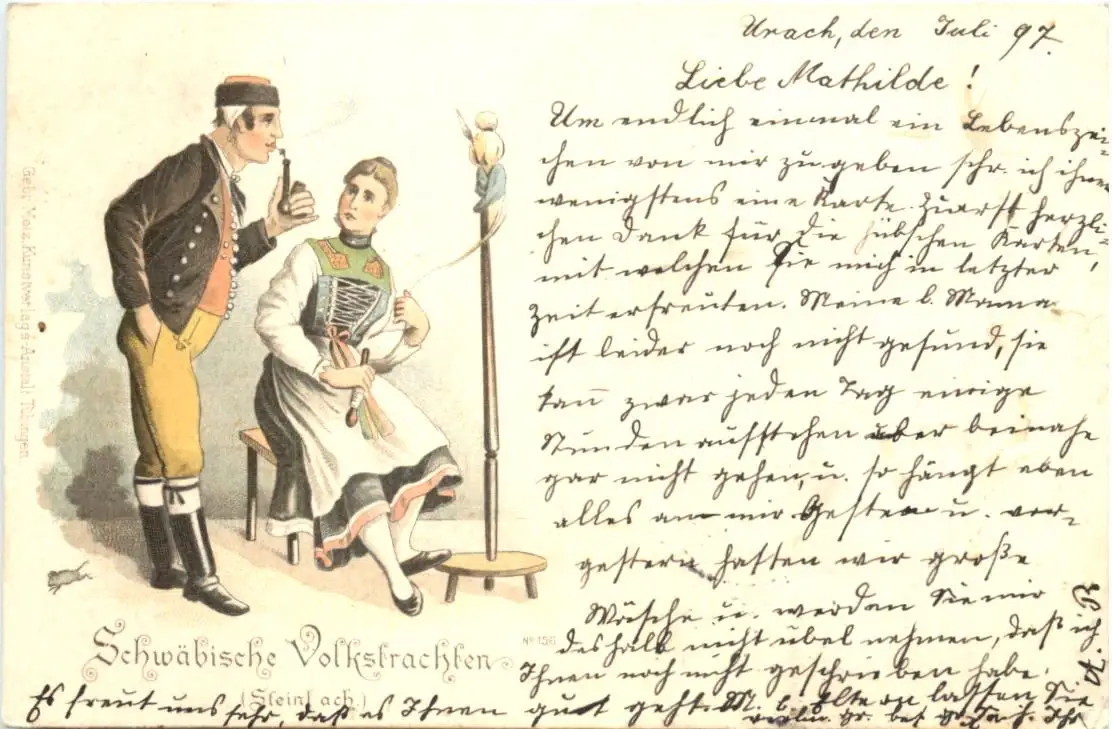 Urach, den Juli 97.
Liebe Mathilde!
Um endlich einmal ein Lebenszei-
chen von mir zu geben schr. ich ihnen
wenigstens eine Karte. Zuerst herzli-
chen Dank für die hübschen Karten,
mit welchen Sie mich in letzter
Zeit erfreuten. Meine l. Mama
ist leider noch nicht gesund, sie
kann zwar jeden Tag einige
Stunden aufstehen aber beinahe
gar nicht gehen, u. so hängt eben
alles an mir. Gestern u. vor-
gestern hatten wir große
Wäsche u. werden Sie mir
deshalb nicht übel nehmen, daß ich
Ihnen noch nicht geschrieben habe.
Es freut uns sehr, daß es Ihnen gut geht. M. l. Eltern lassen Sie
Gebr. Metz, Kunstverlags-Anstalt Tübingen.
Schwäbische Volkstrachten
No 156
(Steinlach.)